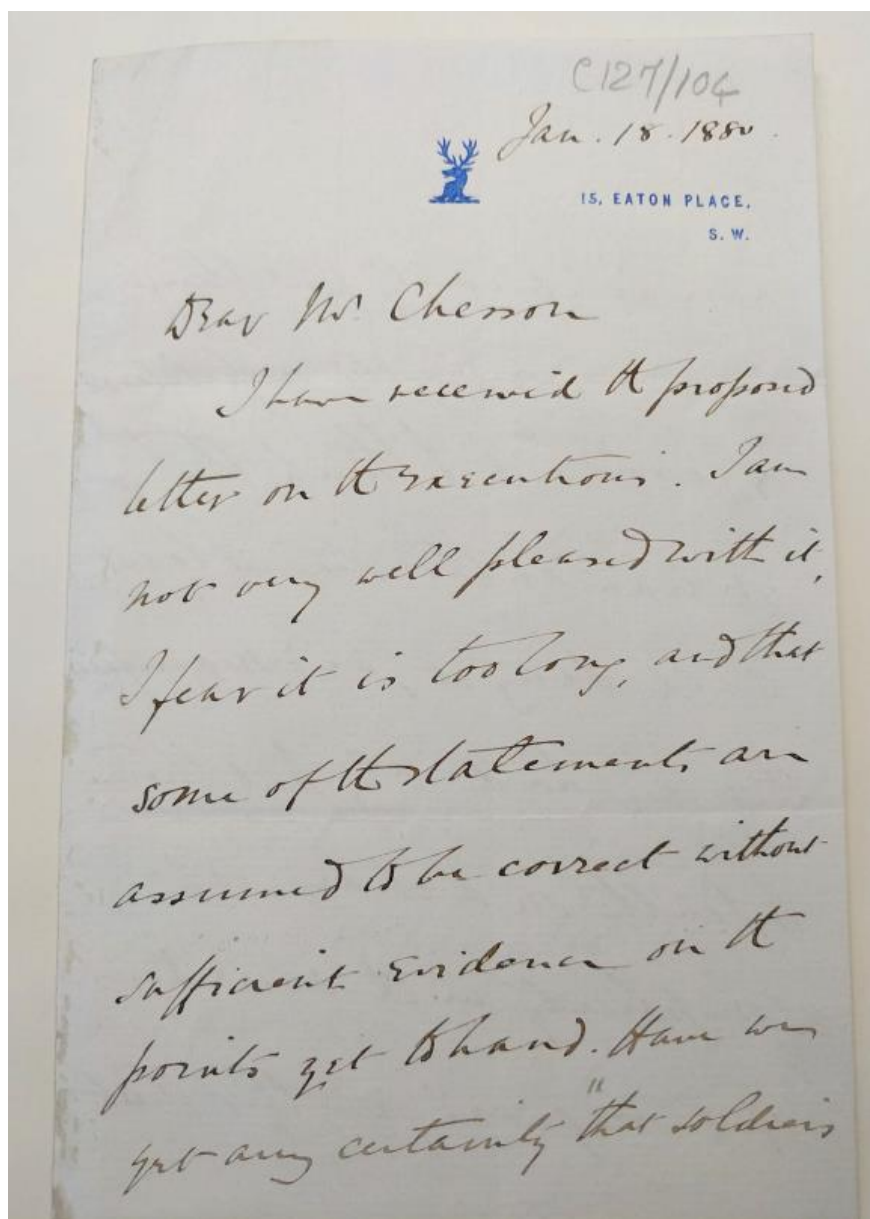 C127/104
Jan. 18. 1880.
15, EATON PLACE,
S. W.
Dear Mr Chesson
I have received the proposed
letter on the Executions. I am
not very well pleased with it,
I fear it is too long, and that
some of the statements are
assumed to be correct without
sufficient evidence on the
points yet to hand. Have we
yet any certainty "that soldiers